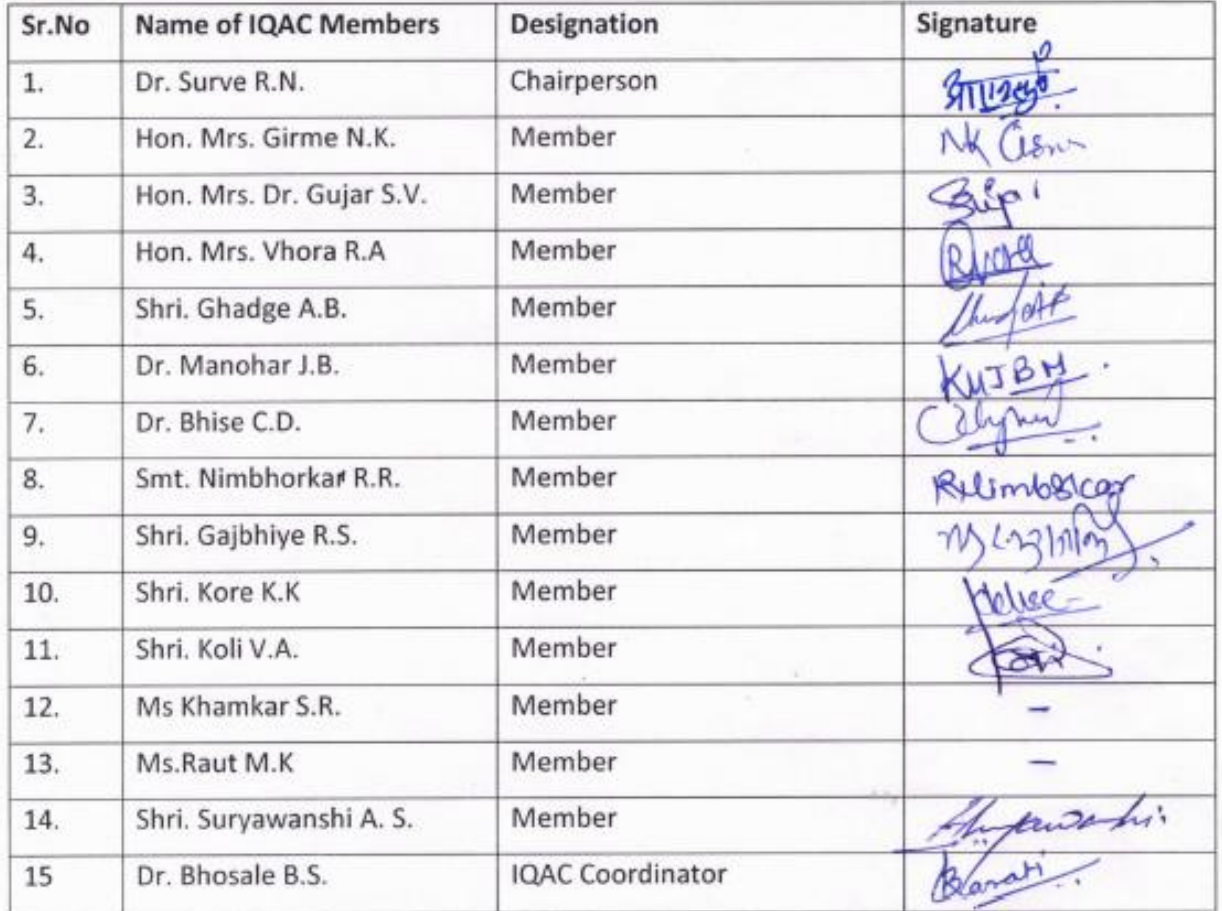 Sr.No Name of IQAC Members Designation Signature
1. Dr. Surve R.N. Chairperson
2. Hon. Mrs. Girme N.K. Member
3. Hon. Mrs. Dr. Gujar S.V. Member
4. Hon. Mrs. Vhora R.A Member
5. Shri. Ghadge A.B. Member
6. Dr. Manohar J.B. Member KMJBM
7. Dr. Bhise C.D. Member
8. Smt. Nimbhorkar R.R. Member
9. Shri. Gajbhiye R.S. Member
10. Shri. Kore K.K Member
11. Shri. Koli V.A. Member
12. Ms Khamkar S.R. Member -
13. Ms.Raut M.K Member -
14. Shri. Suryawanshi A. S. Member
15 Dr. Bhosale B.S. IQAC Coordinator